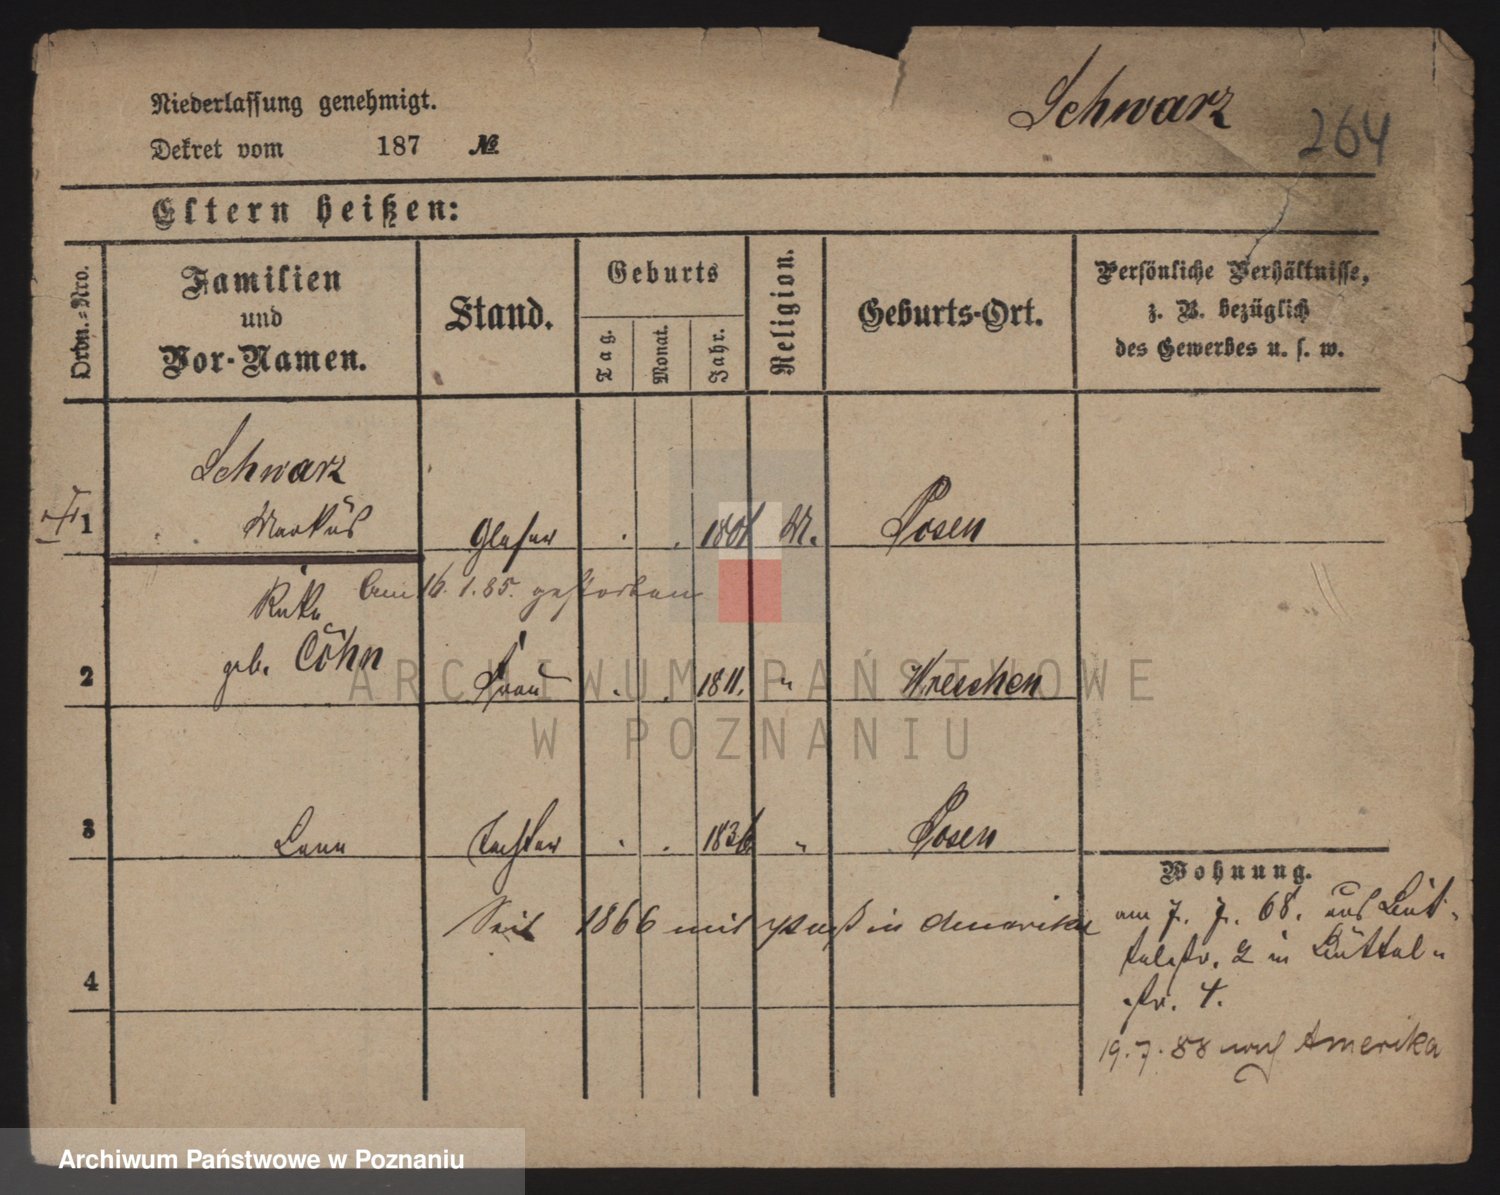 Niederlassung genehmigt.
Schwarz 264
Dekret vom 187 №
Eltern heißen:
Ordn.-Nro.
Familien
und
Vor-Namen.
Stand.
Geburts
Tag.
Monat.
Jahr.
Religion.
Geburts-Ort.
Persönliche Verhältnisse,
z. B. bezüglich
des Gewerbes u. s. w.
Schwarz
1 Markus Glaser 1801 M. Posen
Am 16. 1. 85. gestorben
Rike
2 geb. Cohn Frau 1811. " Wreschen
3 Lena Tochter 1836 " Posen
Seit 1866 mit in Amerika
4
Wohnung.
am 7. 7. 68. aus Büt-
telstr. 2 in Büttel-
str. 4.
19. 7. 88 nach Amerika
ARCHIWUM PAŃSTWOWE
W POZNANIU
Archiwum Państwowe w Poznaniu